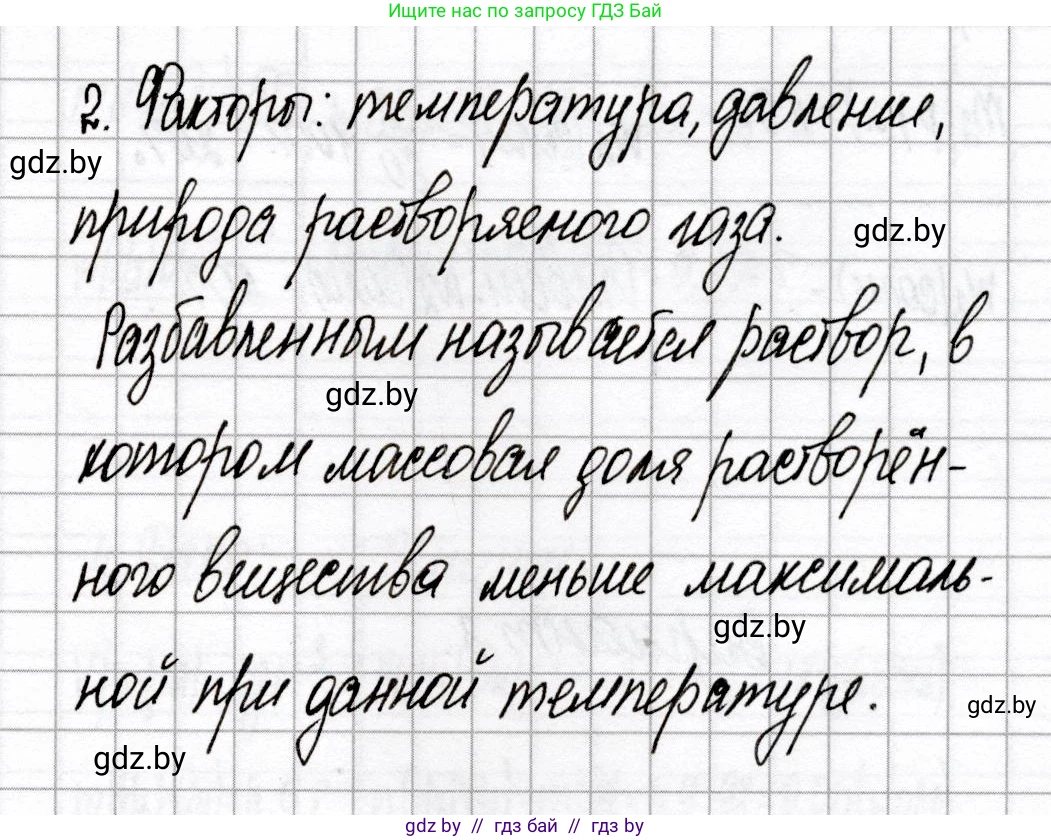 Ищите нас по запросу ГДЗ Бай
2. Факторы: температура, давление,
gdz.by
природа растворяемого газа.
gdz.by
Разбавленным называется раствор, в
gdz.by
котором массовая доля растворён-
ного вещества меньше максималь-
gdz.by
ной при данной температуре.
gdz.by
gdz.by
gdz.by // гдз бай // гдз by